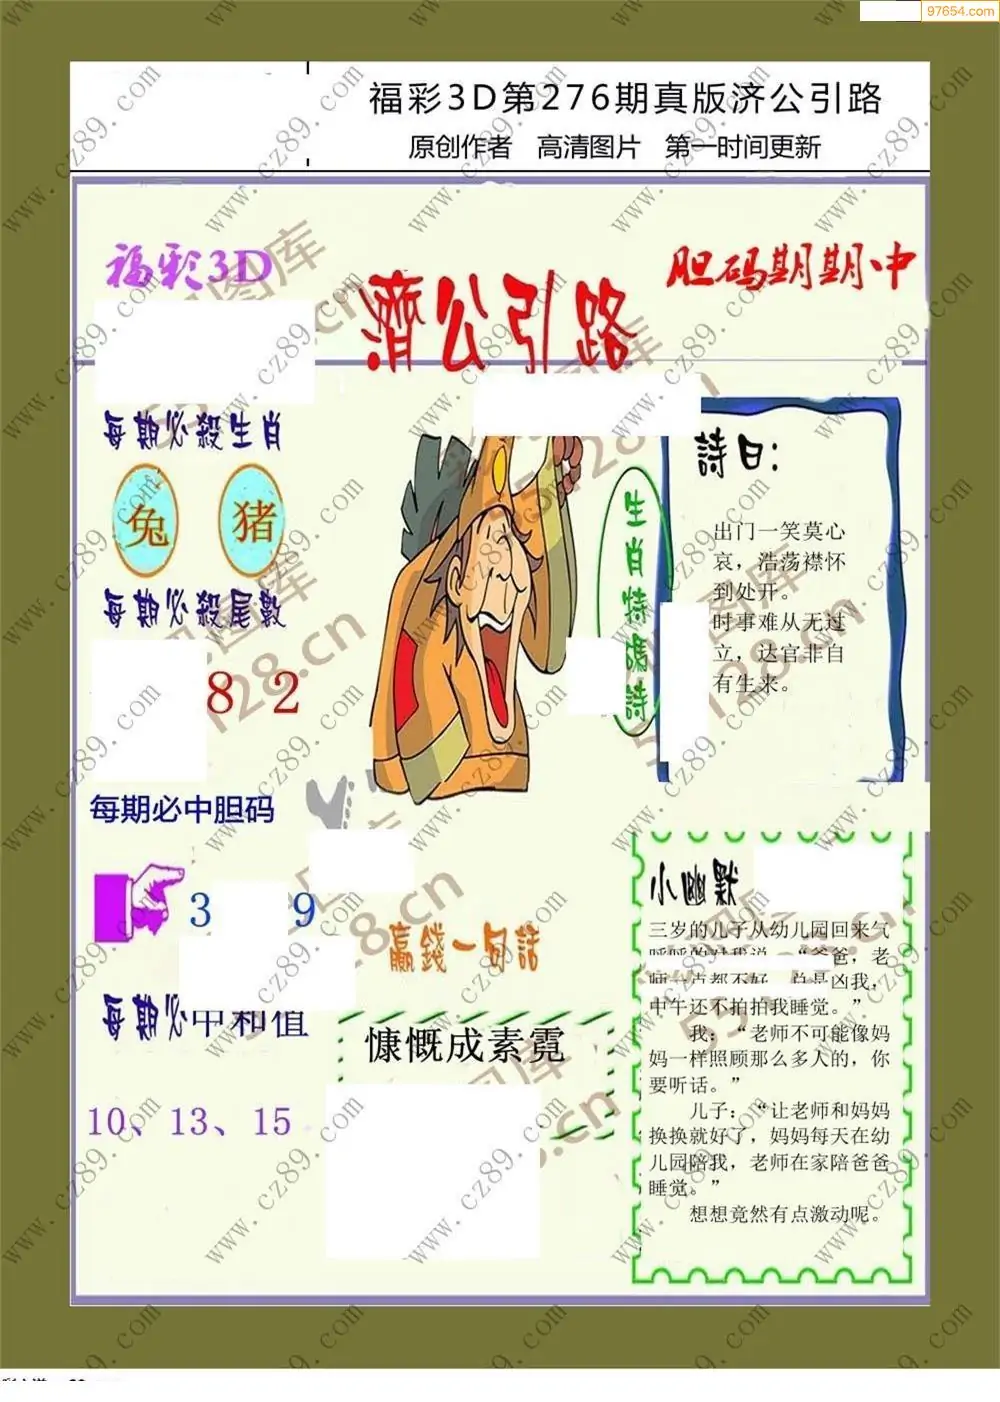 97654.com
福彩3D第276期真版济公引路
原创作者 高清图片 第一时间更新
福彩3D
濟公引路
胆码期期中
每期必殺生肖
兔 猪
每期必殺尾數
8 2
每期必中胆码
3 9
每期必中和值
10、13、15
生肖特碼詩
詩曰:
出门一笑莫心
哀，浩荡襟怀
到处开。
时事难从无过
立，达官非自
有生来。
赢錢一句話
慷慨成素霓
小幽默
三岁的儿子从幼儿园回来气
呼呼的对我说：“爸爸，老
师一点都不好，总是凶我，
中午还不拍拍我睡觉。”
我：“老师不可能像妈
妈一样照顾那么多人的，你
要听话。”
儿子：“让老师和妈妈
换换就好了，妈妈每天在幼
儿园陪我，老师在家陪爸爸
睡觉。”
想想竟然有点激动呢。
www.cz89.com